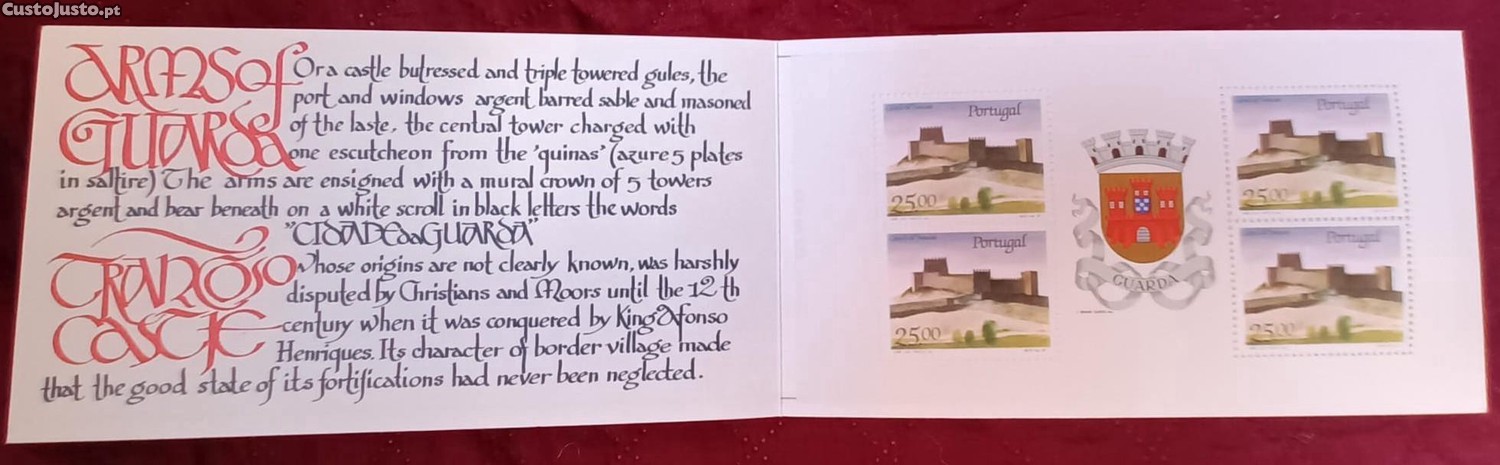 CustoJusto.pt
ARMS of Or a castle butressed and triple towered gules, the
port and windows argent barred sable and masoned
of the laste, the central tower charged with
GUARDA one escutcheon from the 'quinas' (azure 5 plates
in saltire) The arms are ensigned with a mural crown of 5 towers
argent and bear beneath on a white scroll in black letters the words
"CIDADE DA GUARDA"
TRANCOSO Whose origins are not clearly known, was harshly
disputed by Christians and Moors until the 12 th
CASTLE century when it was conquered by King Afonso
Henriques. Its character of border village made
that the good state of its fortifications had never been neglected.
Portugal
25.00
Portugal
25.00
GUARDA
Portugal
25.00
Portugal
25.00